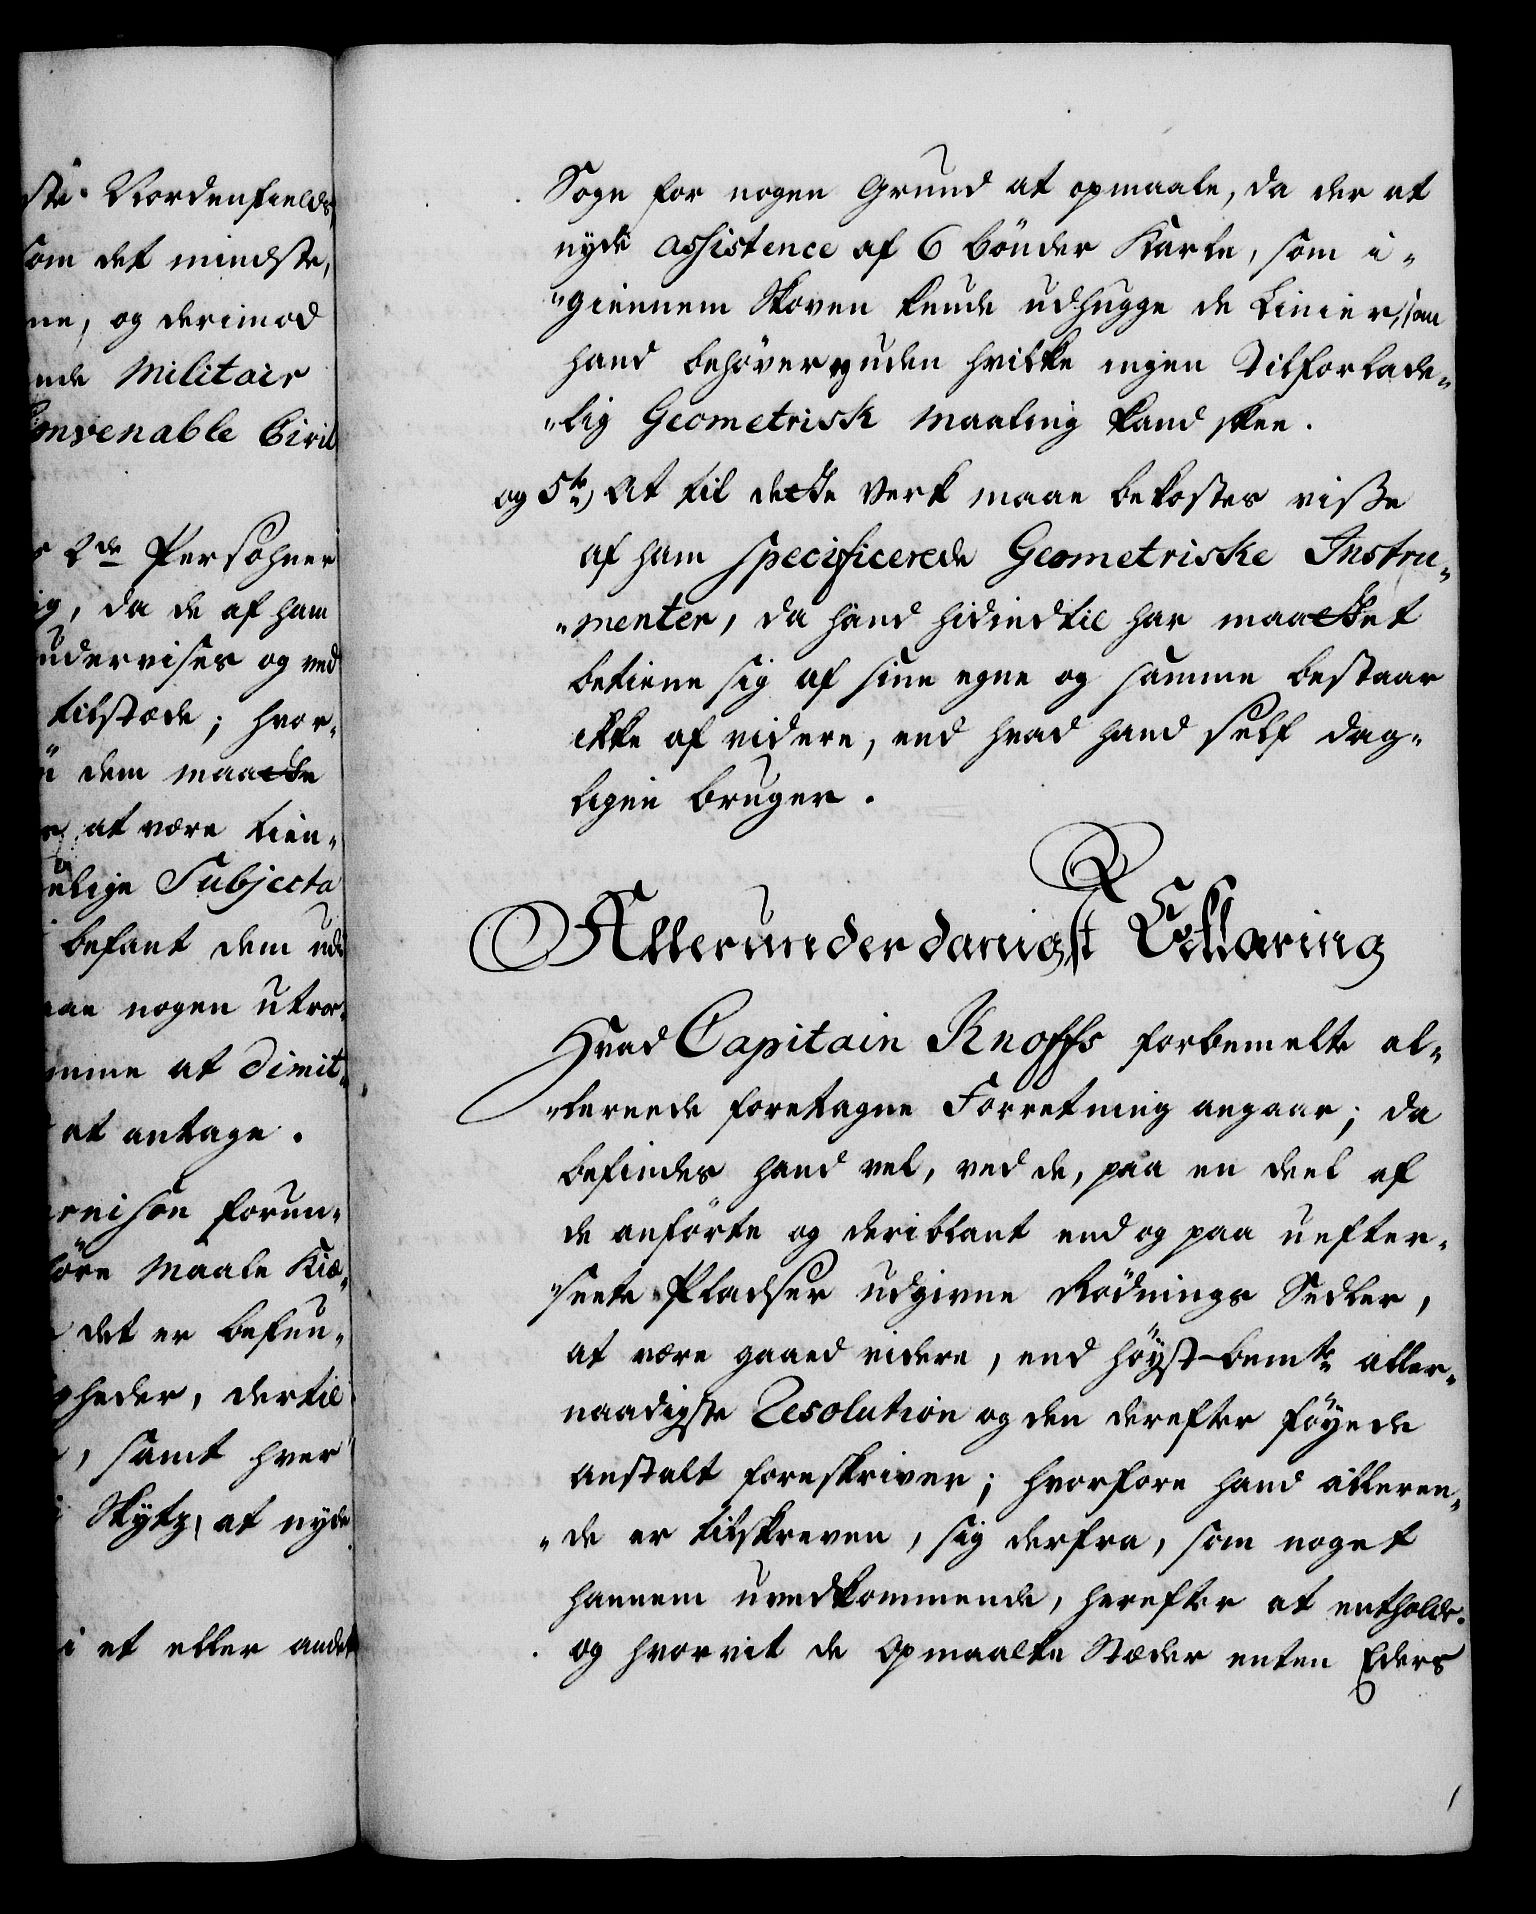 ste Nordenfields
som det mindste,
ne, og derimod
nde Militair
Convenable Civil
2de Persohner
ig, da de af ham
undervises og ved
tilstæde; hvor-
dem maatte
at være tien-
elige Subjecta
befant dem ude
nogen utroe-
mme at dimit-
at antage.
rnison forun-
Maale Kiæ-
det er befun-
gheder, dertil
, samt hver
Skytz, at nyde
i et eller andet
Sogn for nogen Grund at opmaale, da der at
nyde assistence af 6 bönder Karle, som i-
"giennem Skoven kunde udhugge de Linier, som
hand behöver og uden hvilke ingen Tilforlade-
"lig Geometrisk Maaling kand skee.
og 5te) At til dette Verk maae bekostes viße
af ham specificerede Geometriske Instru-
"menter, da hand hidindtil har maattet
betiene sig af sine egne og samme bestaar
ikke af videre, end hvad hand self dag-
ligen bruger.
Allerunderdanigst Erklæring
Hvad Capitain Knoffs forbemelte al-
"lereede foretagne Forretning angaar; da
befindes hand vel, ved de, paa en deel af
de anförte og deriblant end og paa uefter-
"seete Pladser udgivne Rödnings Sedler,
at være gaaed videre, end höyst-bemte aller-
naadigste Resolution og den derefter föyede
anstalt foreskriver; hvorfore hand alleren-
"de er tilskreven, sig derfra, som noget
hannem uvedkommende, herefter at entholde.
og hvorvit de opmaalte Stæder enten Eders